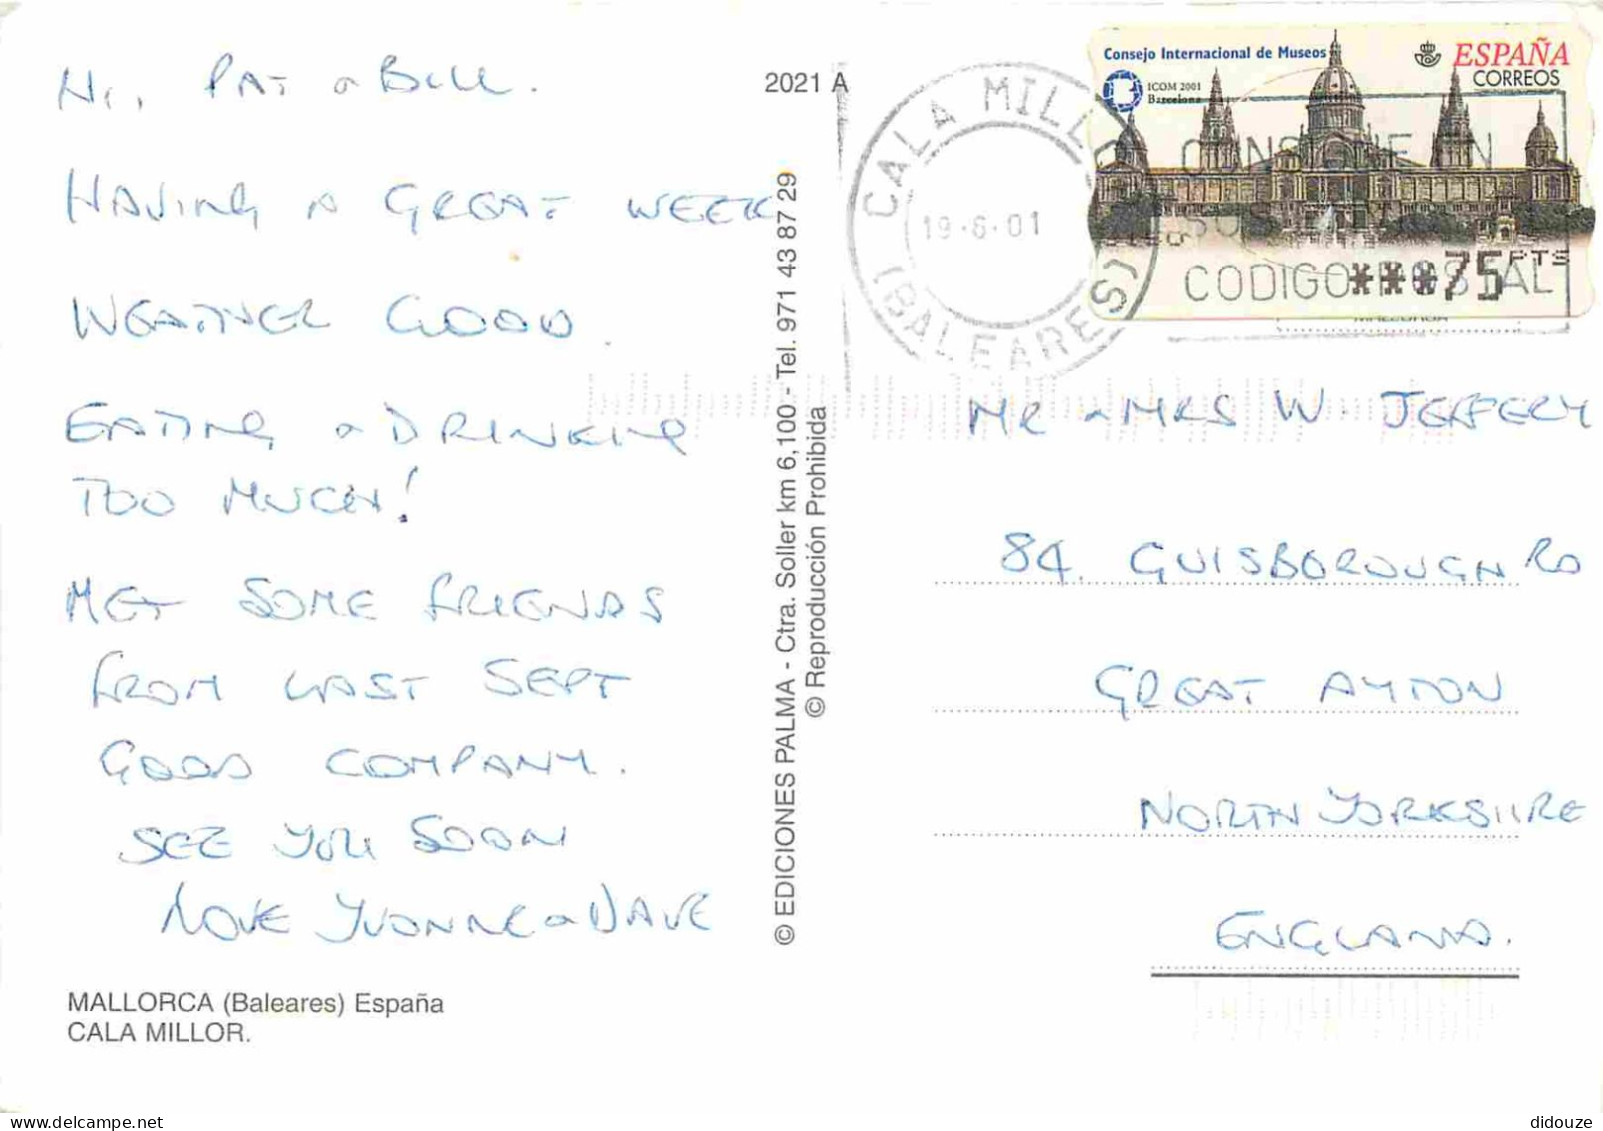 Hi, PAT & BILL.
HAVING A GREAT WEEK
WEATHER GOOD.
EATING & DRINKING
TOO MUCH!
MET SOME FRIENDS
FROM LAST SEPT
GOOD COMPANY.
SEE YOU SOON
LOVE YVONNE & DAVE
MALLORCA (Baleares) España
CALA MILLOR.
2021 A
© EDICIONES PALMA - Ctra. Soller km 6,100 - Tel. 971 43 87 29
© Reproducción Prohibida
CALA MILLOR
19-6-01
(BALEARES)
Consejo Internacional de Museos
ICOM 2001
Barcelona
ESPAÑA
CORREOS
***75 PTS
CODIGO POSTAL
MR & MRS W. JEFFERY
84. GUISBOROUGH RD
GREAT AYTON
NORTH YORKSHIRE
ENGLAND.
didouze